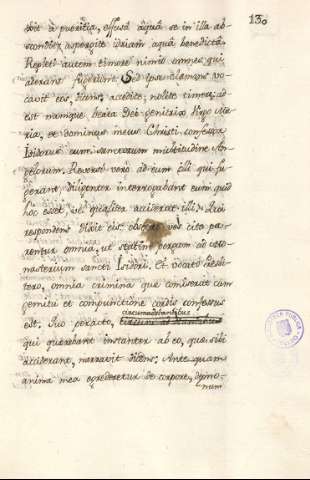 130
dixit à pueritia, effusâ aquâ se in illa ab-
scondit, aspergite idriam aquâ benedictâ.
Repleti autem timore nimio omnes qui
aderant fugerunt. Sed ipse clamans vo-
cavit eos, dicens: accedite, nolite timere, ad-
est namque beata Dei genitrix Virgo Ma-
ria, et dominus meus Christi confessor
Isidorus cum sanctorum multitudine An-
gelorum. Reversi verò ad eum illi qui fu-
gerant, diligenter interrogabant eum quid
hoc esset, vel qualiter acciderat illi. Qui
respondens dixit eis: obsecro vos cito pa-
rentur omnia, ut statim vadam ad mo-
nasterium sancti Isidori. Et vocato presbi-
tero, omnia crimina que comiserat cum
gemitu et compunctione cordis confessus
est. Quo peracto, circumadstantibus
qui querebant instanter ab eo, que sibi
acciderant, narravit dicens: Antequam
anima mea egrederetur de corpore, demo-
num